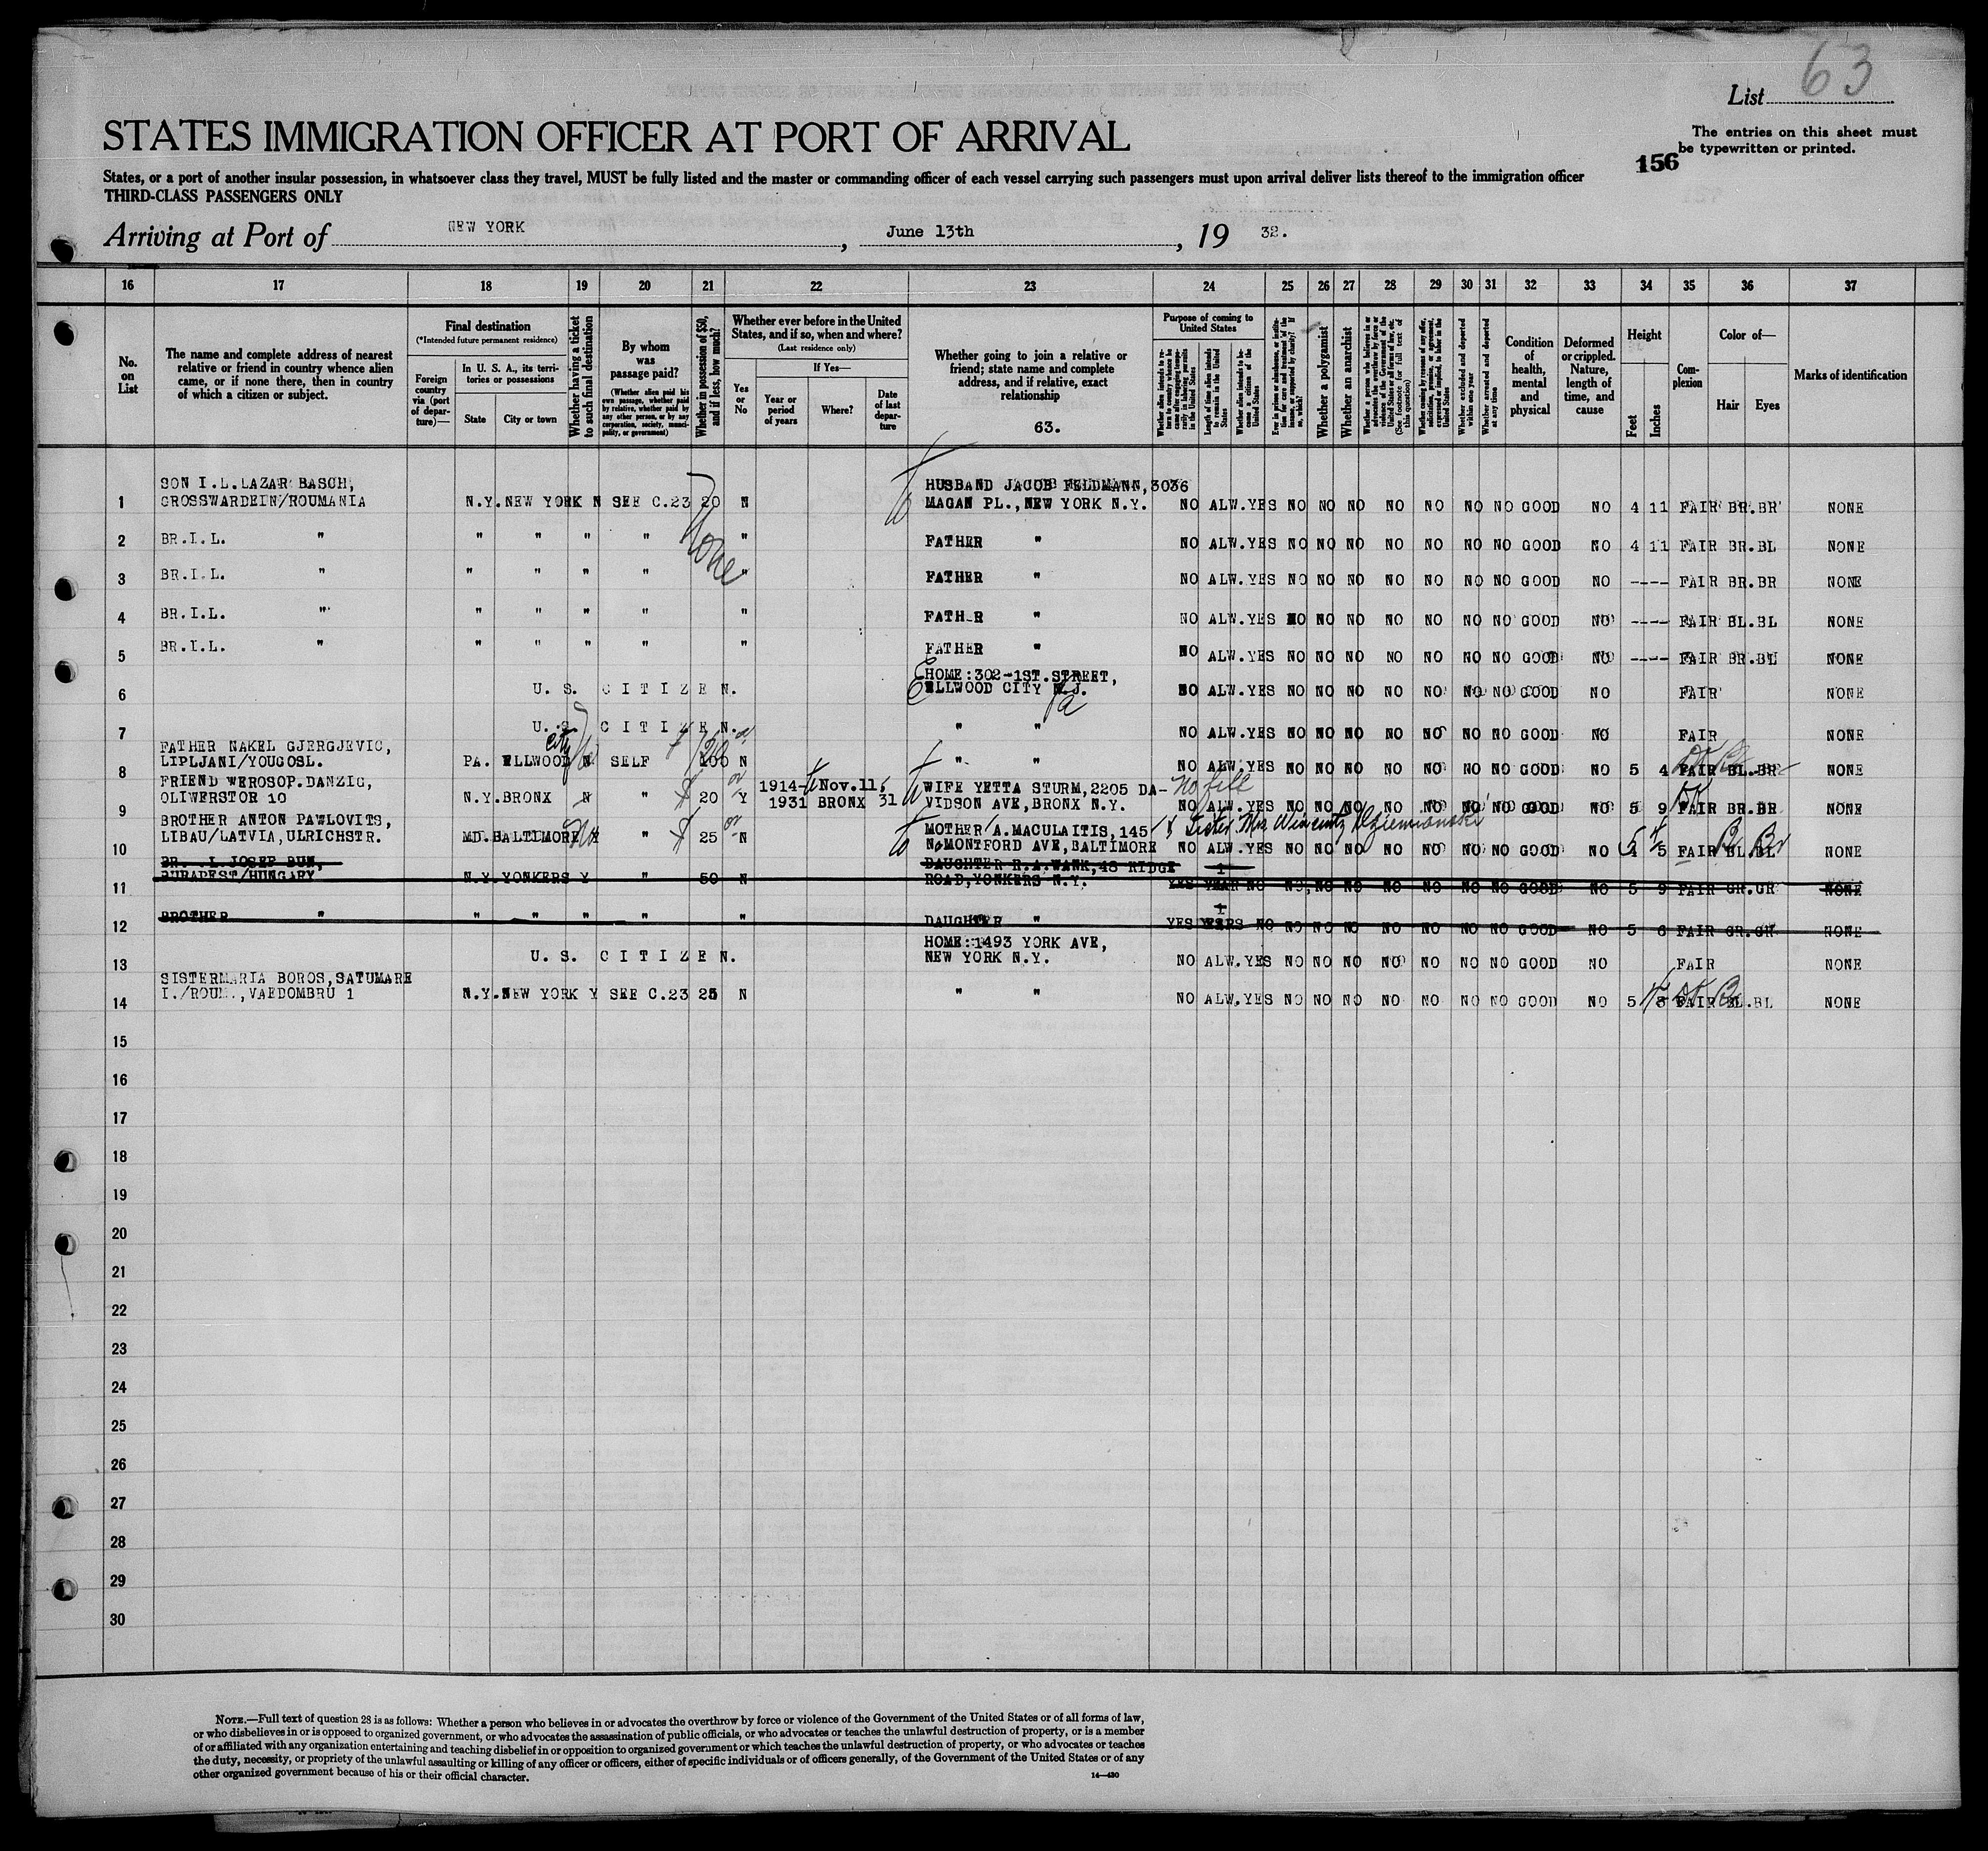 63
List
STATES IMMIGRATION OFFICER AT PORT OF ARRIVAL
The entries on this sheet must
be typewritten or printed.
156
States, or a port of another insular possession, in whatsoever class they travel, MUST be fully listed and the master or commanding officer of each vessel carrying such passengers must upon arrival deliver lists thereof to the immigration officer
THIRD-CLASS PASSENGERS ONLY
Arriving at Port of NEW YORK, June 13th, 19 32.
16 17 18 19 20 21 22 23 24 25 26 27 28 29 30 31 32 33 34 35 36 37
No. on List
The name and complete address of nearest
relative or friend in country whence alien
came, or if none there, then in country
of which a citizen or subject.
Final destination
(*Intended future permanent residence)
Foreign country via (port of departure)—
In U. S. A., its territories or possessions
State
City or town
Whether having a ticket to such final destination
By whom was passage paid?
(Whether alien paid his own passage, whether paid by relative, whether paid by any other person, or by any corporation, society, municipality, or government)
Whether in possession of $50, and if less, how much?
Whether ever before in the United
States, and if so, when and where?
(Last residence only)
Yes or No
If Yes—
Year or period of years
Where?
Date of last departure
Whether going to join a relative or
friend; state name and complete
address, and if relative, exact
relationship
63.
Purpose of coming to United States
Whether alien intends to return to country whence he came after engaging temporarily in laboring pursuits in the United States
Length of time alien intends to remain in the United States
Whether alien intends to become a citizen of the United States
Ever in prison or almshouse, or institution for care and treatment of the insane, or supported by charity? If so, which?
Whether a polygamist
Whether an anarchist
Whether a person who believes in or advocates the overthrow by force or violence of the Government of the United States or all forms of law, etc. (See footnote for full text of this question)
Whether coming by reasons of any offer, solicitation, promise, or agreement, expressed or implied, to labor in the United States
Whether excluded and deported within one year
Whether arrested and deported at any time
Condition of health, mental and physical
Deformed or crippled. Nature, length of time, and cause
Height
Feet
Inches
Complexion
Color of—
Hair
Eyes
Marks of identification
SON I.L.LAZAR BASCH, HUSBAND JACOB FELDMANN,3036
1 GROSSWARDEIN/ROUMANIA N.Y. NEW YORK N SEE C.23 20 N MAGAN PL.,NEW YORK N.Y. NO ALW.YES NO NO NO NO NO NO NO GOOD NO 4 11 FAIR BR.BR NONE
None
2 BR.I.L. " " " " " " FATHER " NO ALW.YES NO NO NO NO NO NO NO GOOD NO 4 11 FAIR BR.BL NONE
3 BR.I.L. " " " " " " FATHER " NO ALW.YES NO NO NO NO NO NO NO GOOD NO ---- FAIR BR.BR NONE
4 BR.I.L. " " " " " " FATH-R " NO ALW.YES NO NO NO NO NO NO NO GOOD NO ---- FAIR BL.BL NONE
5 BR.I.L. " " " " " " FATHER " NO ALW.YES NO NO NO NO NO NO NO GOOD NO ---- FAIR BR.BL NONE
HOME:302-1ST.STREET,
6 U. S. CITIZEN. ELLWOOD CITY N.J. Pa NO ALW.YES NO NO NO NO NO NO NO GOOD NO FAIR NONE
7 U. S. CITIZEN. " " NO ALW.YES NO NO NO NO NO NO NO GOOD NO FAIR NONE
FATHER NAKEL GJERGJEVIC, City
8 LIPLJANI/YOUGOSL. PA. ELLWOOD N SELF 100 N " " NO ALW.YES NO NO NO NO NO NO NO GOOD NO 5 4 FAIR BL.BR NONE
FRIEND WEROSOP.DANZIG, 1914- Nov.11, WIFE YETTA STURM,2205 DA- No fee
9 OLIWERSTOR 10 N.Y. BRONX N " 20 Y 1931 BRONX 31 VIDSON AVE,BRONX N.Y. NO ALW.YES NO NO NO NO NO NO NO GOOD NO 5 9 FAIR BR.BR NONE
BROTHER ANTON PAWLOVITS, MOTHER A.MACULAITIS,145 & Sister Mrs
10 LIBAU/LATVIA,ULRICHSTR. MD. BALTIMORE " 25 N N.MONTFORD AVE,BALTIMORE NO ALW.YES NO NO NO NO NO NO NO GOOD NO 5 FAIR BL.BL NONE
BR. .L.JOSEP BUN, DAUGHTER R.A.WANK,48 RIDGE 1
11 BUDAPEST/HUNGARY N.Y. YONKERS Y " 50 N ROAD,YONKERS N.Y. YES YEAR NO NO NO NO NO NO NO NO GOOD NO 5 9 FAIR GR.GR NONE
1
12 BROTHER " " " " " " DAUGHTER " YES YEARS NO NO NO NO NO NO NO NO GOOD NO 5 6 FAIR GR.GR NONE
HOME:1493 YORK AVE,
13 U. S. CITIZEN. NEW YORK N.Y. NO ALW.YES NO NO NO NO NO NO NO GOOD NO FAIR NONE
SISTERMARIA BOROS,SATUMARE
14 I./ROUM.,VAEDOMBRU 1 N.Y. NEW YORK Y SEE C.23 25 N " " NO ALW.YES NO NO NO NO NO NO NO GOOD NO 5 FAIR BL.BL NONE
15
16
17
18
19
20
21
22
23
24
25
26
27
28
29
30
NOTE.—Full text of question 28 is as follows: Whether a person who believes in or advocates the overthrow by force or violence of the Government of the United States or of all forms of law,
or who disbelieves in or is opposed to organized government, or who advocates the assassination of public officials, or who advocates or teaches the unlawful destruction of property, or is a member
of or affiliated with any organization entertaining and teaching disbelief in or opposition to organized government or which teaches the unlawful destruction of property, or who advocates or teaches
the duty, necessity, or propriety of the unlawful assaulting or killing of any officer or officers, either of specific individuals or of officers generally, of the Government of the United States or of any
other organized government because of his or their official character.
14—430